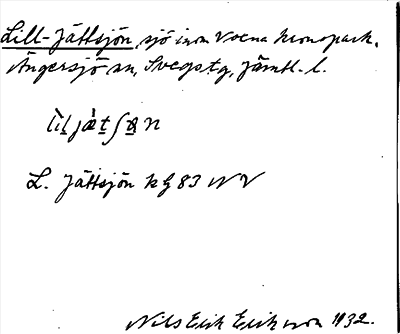 Lill-Jättsjön, sjö inom Voxna kronopark,
Ängersjö sn, Svegs tg, Jämtl. l.
L. Jättsjön k G 83 NV
Nils Erik Eriksson 1932.